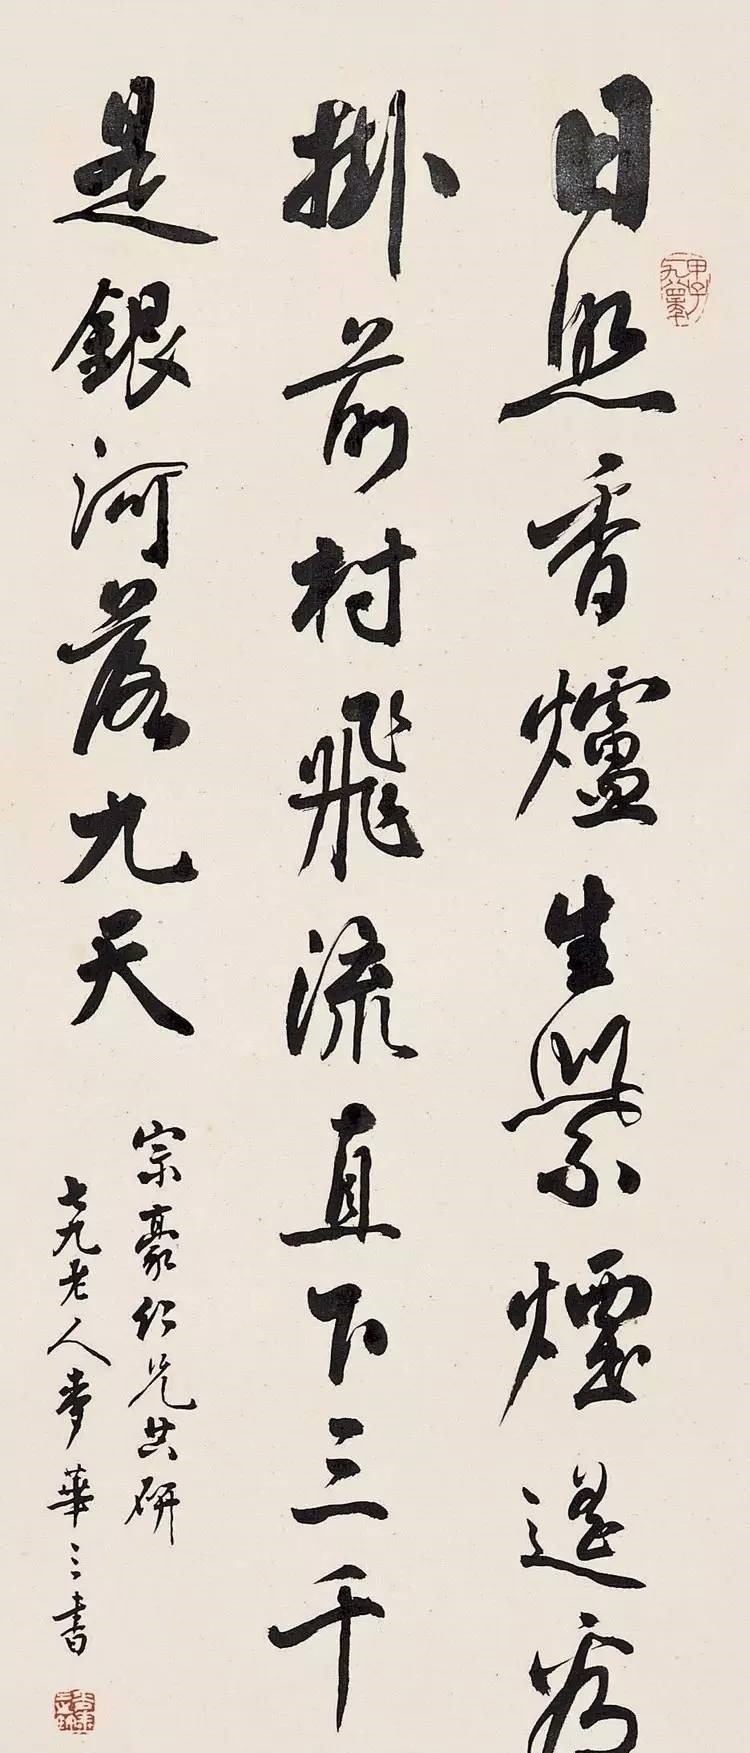 日照香爐生紫煙遙看
掛前村飛流直下三千
是銀河落九天
宗豪仁兄共研
七九老人麥華三書